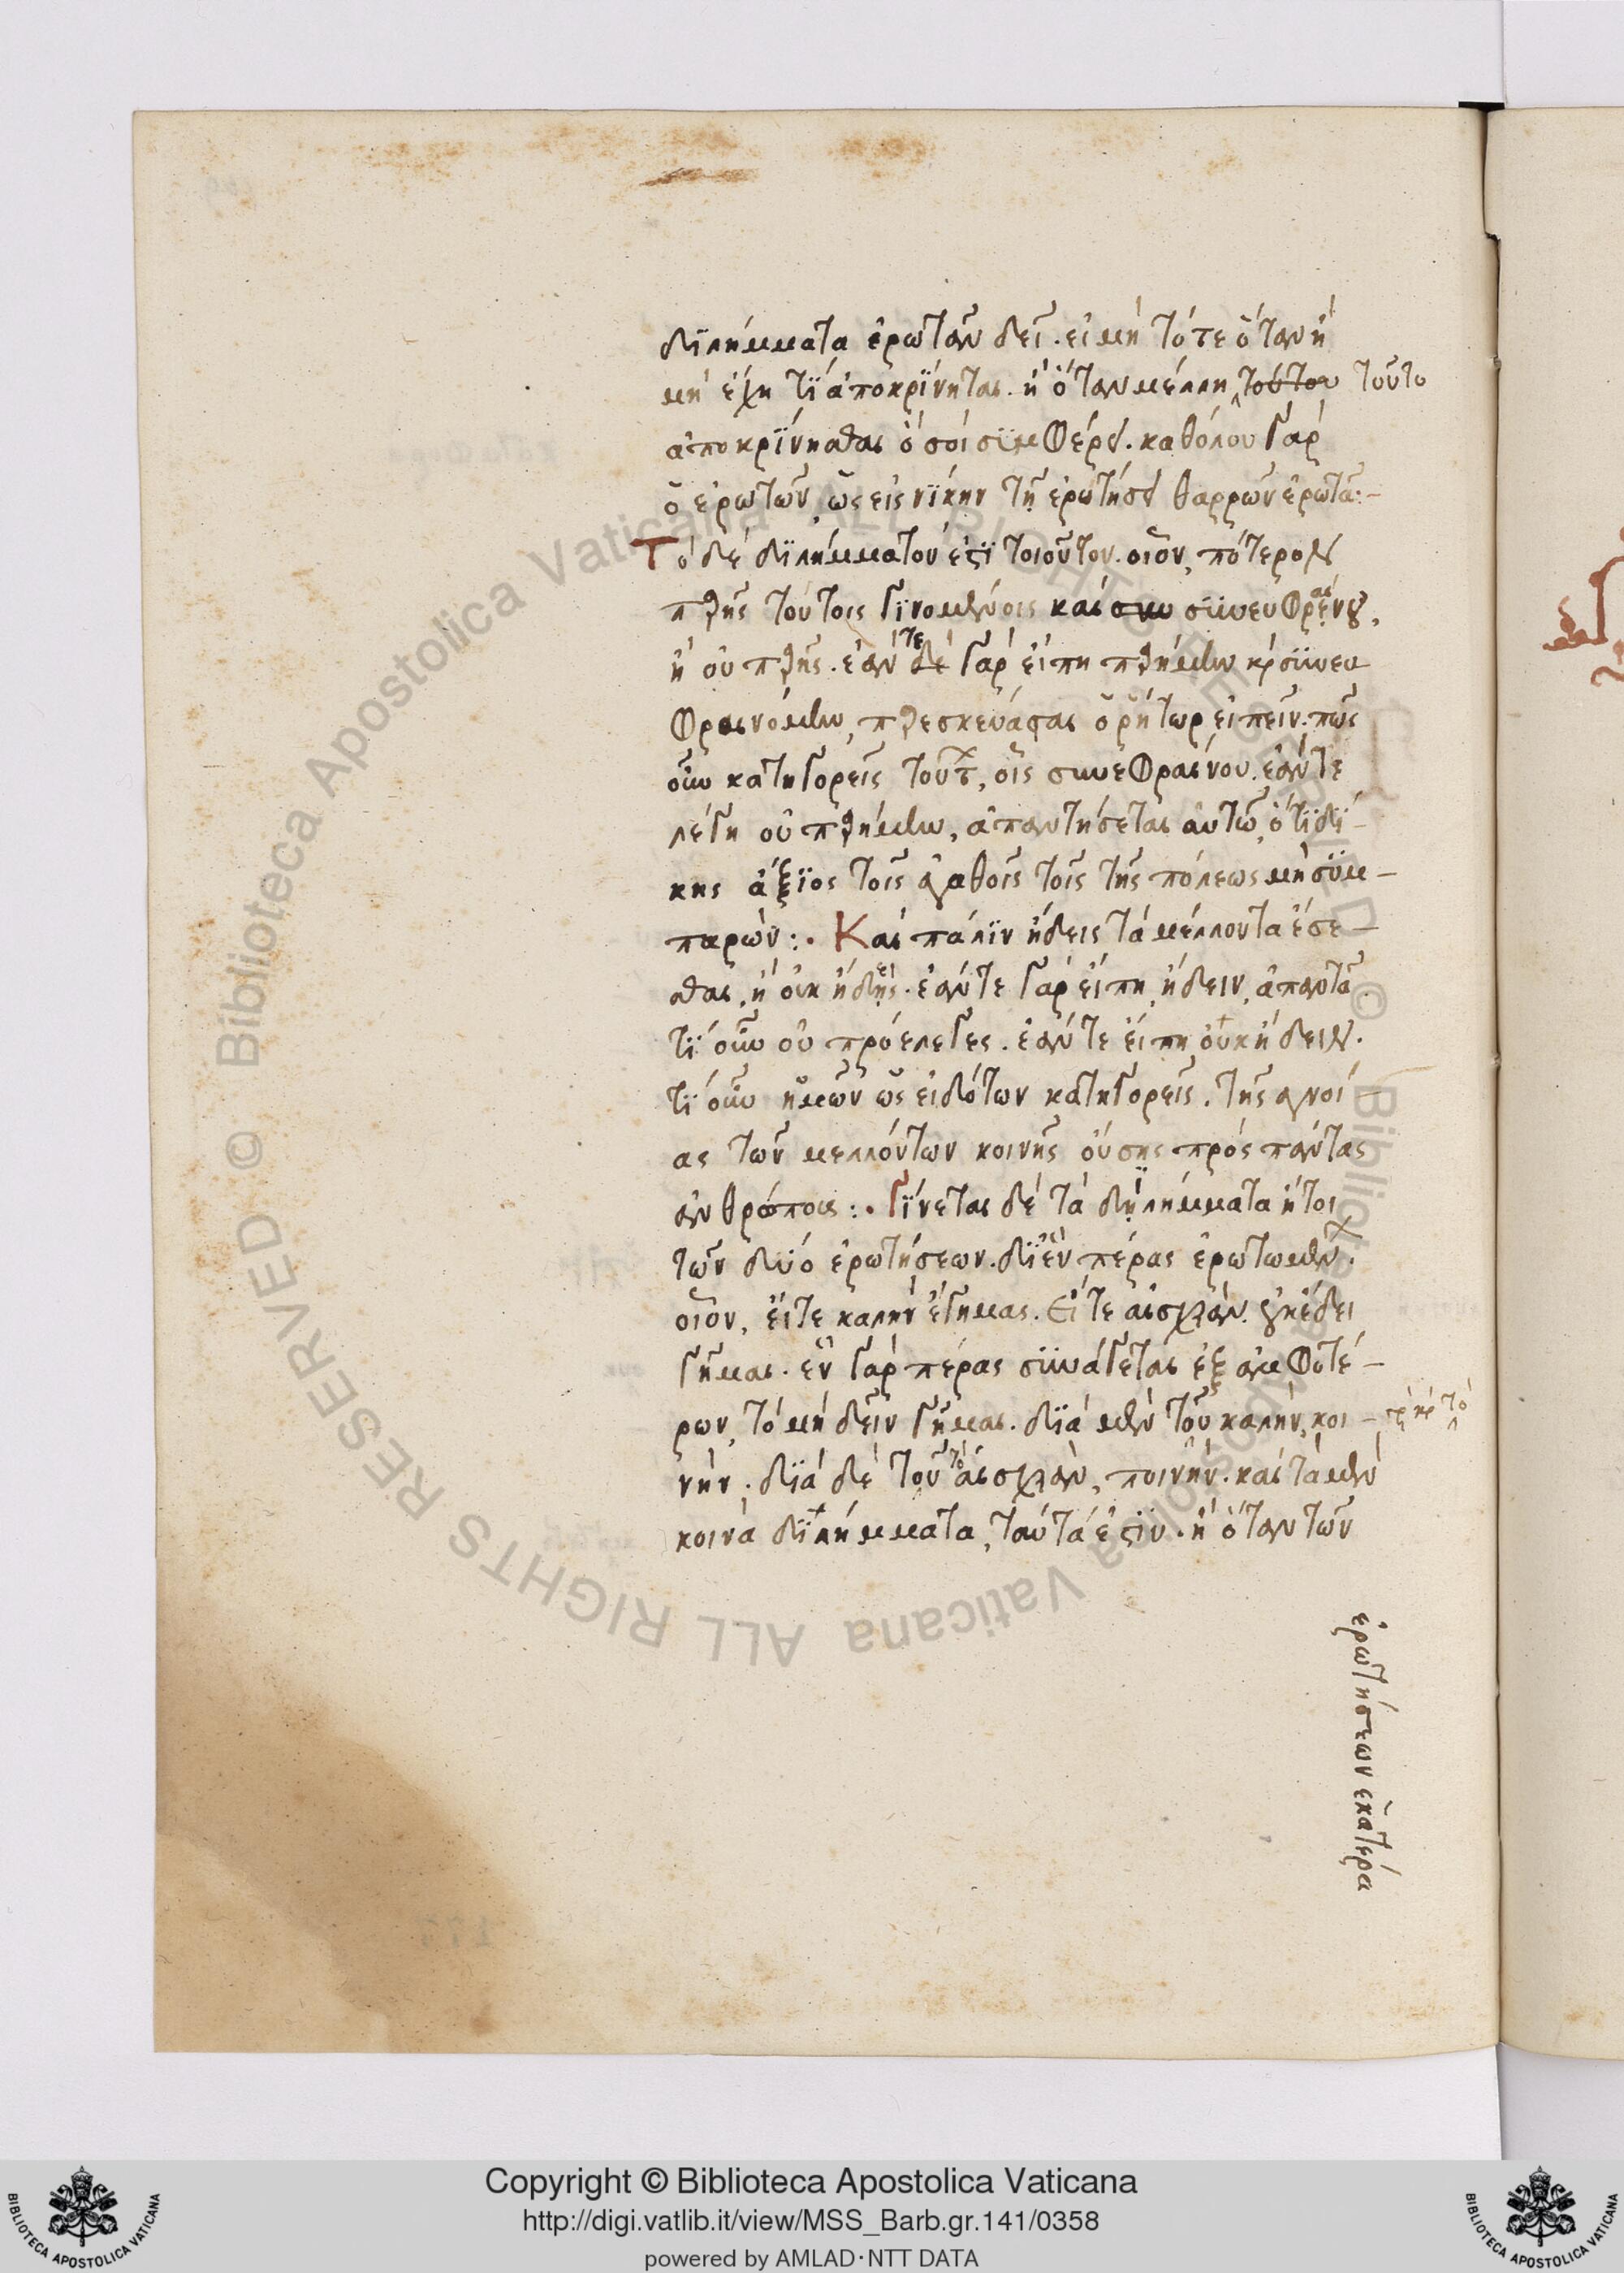 διλήμματα ἐρωτᾶν δεῖ. εἰ μὴ τότε ὅταν ἢ
μὴ ἔχῃ τί ἀποκρίνηται. ἢ ὅταν μέλλῃ τούτου τοῦτο
ἀποκρίνησθαι ὅ σοι συμφέρει. καθόλου γὰρ
ὁ ἐρωτῶν, ὡς εἰς νίκην τῇ ἐρωτήσει θαρρῶν ἐρωτᾷ:-
Τὸ δὲ διλήμματον ἐστὶ τοιοῦτον. οἷον, πότερον
παρῆς τούτοις γινομένοις καὶ συνευφραίνου,
ἢ οὐ παρῆς. ἐάν τε δὲ γὰρ εἴπῃ παρήμην καὶ συνευ
φραινόμην, παρεσκεύασται ὁ ῥήτωρ εἰπεῖν. πῶς
οὖν κατηγορεῖς τούτων, οἷς συνεφραίνου. ἐάν τε
λέγῃ οὐ παρήμην, ἀπαντήσεται αὐτῷ, ὅτι δί-
κης ἄξιος τοῖς ἀγαθοῖς τοῖς τῆς πόλεως μὴ συμ-
παρών:· Καὶ πάλιν ᾔδεις τὰ μέλλοντα ἔσε-
σθαι, ἢ οὐκ ᾔδης. ἐάν τε γὰρ εἴπῃ, ᾔδειν, ἀπαντᾷ.
τί οὖν οὐ προέλεγες. ἐάν τε εἴπῃ οὐκ ᾔδειν.
τί οὖν ἡμῶν ὡς εἰδότων κατηγορεῖς. τῆς ἀγνοί-
ας τῶν μελλόντων κοινῆς οὔσης πρὸς πάντας
ἀνθρώπους:· Γίνεται δὲ τὰ διλήμματα ἤτοι
τῶν δύο ἐρωτήσεων. δι' ἓν πέρας ἐρωτωμένων.
οἷον, εἴτε καλὴν ἔγημας. Εἴτε αἰσχρὰν. οὐκ ἔδει
γῆμαι. ἓν γὰρ πέρας συνάγεται ἐξ ἀμφοτέ-
ρων, τὸ μὴ δεῖν γῆμαι. διὰ μὲν τοῦ καλὴν, κοι-
νήν. διὰ δὲ τοῦ τὸ αἰσχρὰν, ποινήν. καὶ τὰ μὲν
κοινὰ διλήμματα, ταῦτά ἐστιν. ἢ ὅταν τῶν
ἐρωτήσεων ἑκατέρα
Copyright © Biblioteca Apostolica Vaticana
http://digi.vatlib.it/view/MSS_Barb.gr.141/0358
powered by AMLAD·NTT DATA